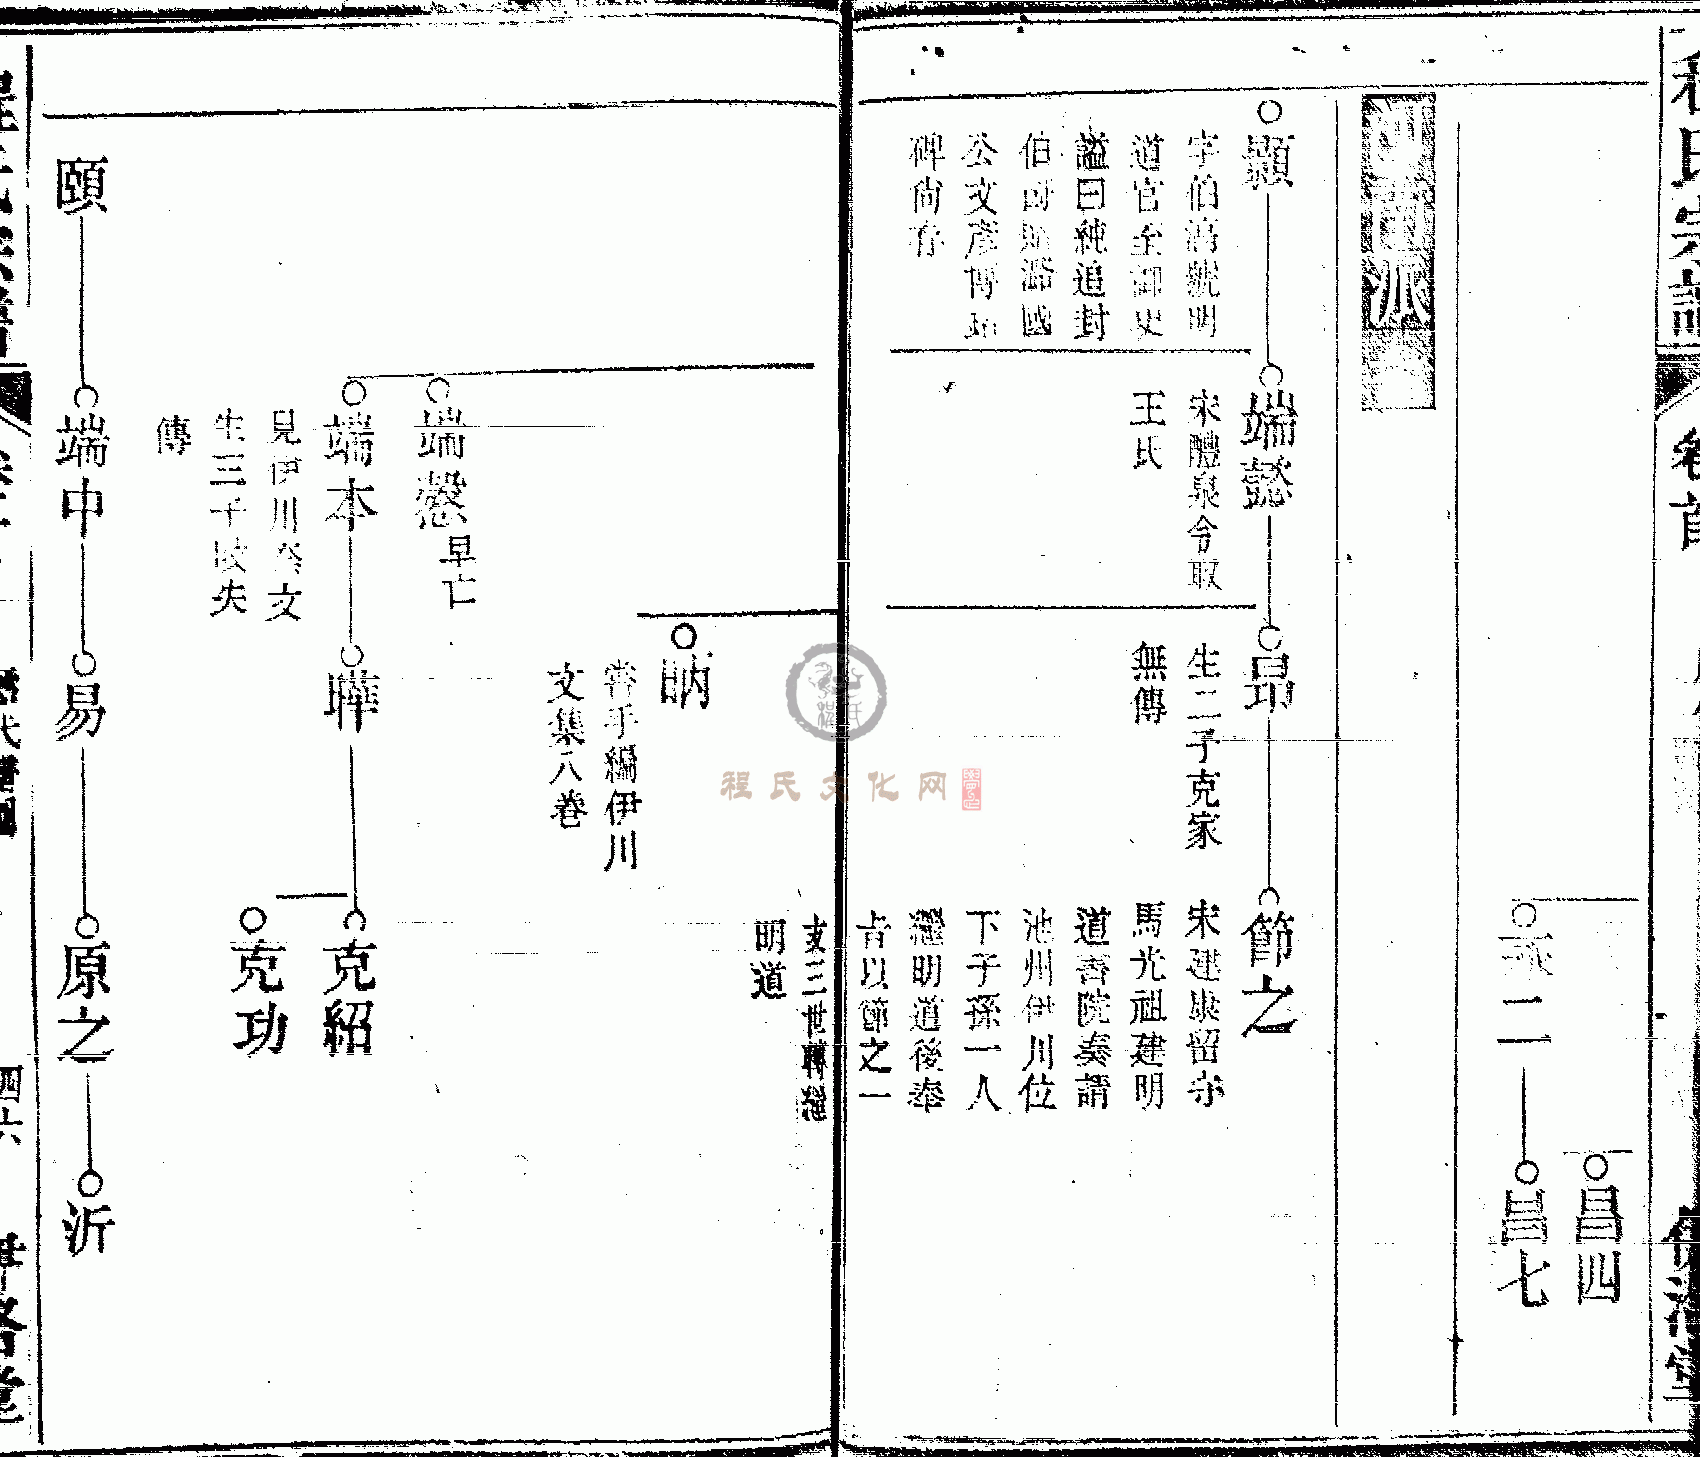 程氏宗譜
卷首
昌四
二
昌七
河南派
顥
字伯淳號明
道官至御史
謚曰純追封
伯
國
公文彥博
碑尚存
端懿
宋醴泉令取
王氏
昂
生二子克家
無傳
節之
宋建康留守
馬光祖建明
道書院奏請
池州伊川位
下子孫一人
繼明道後奉
旨以節之一
支三世轉繼
明道
端愨
早亡
端本
見伊川祭文
生三子
失
傳
昞
嘗手編伊川
文集八卷
曄
克紹
克功
頤
端中
易
原之
沂
四六
程氏文化网